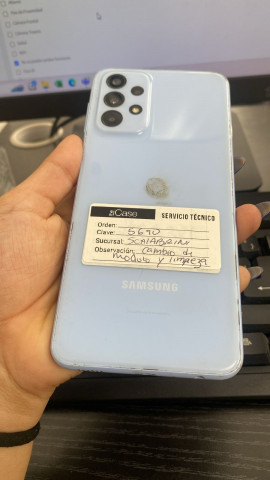 iCase SERVICIO TÉCNICO
Orden:
Clave: 5690
Sucursal: SCALABRINI
Observación: Cambio de
modulo y limpieza
SAMSUNG